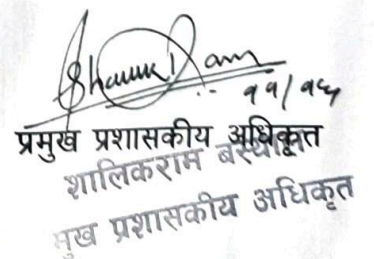 ११/१५
प्रमुख प्रशासकीय अधिकृत
शालिकराम
मुख प्रशासकीय अधिकृत